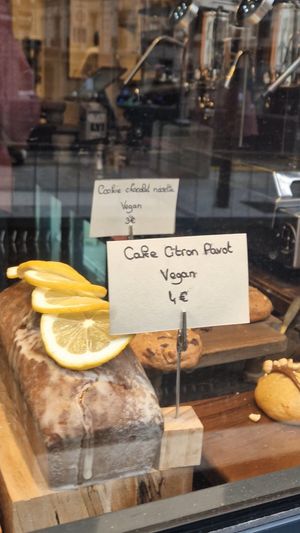 Cookie chocolat noisette
Vegan
3€
Cake Citron Pavot
Vegan
4€